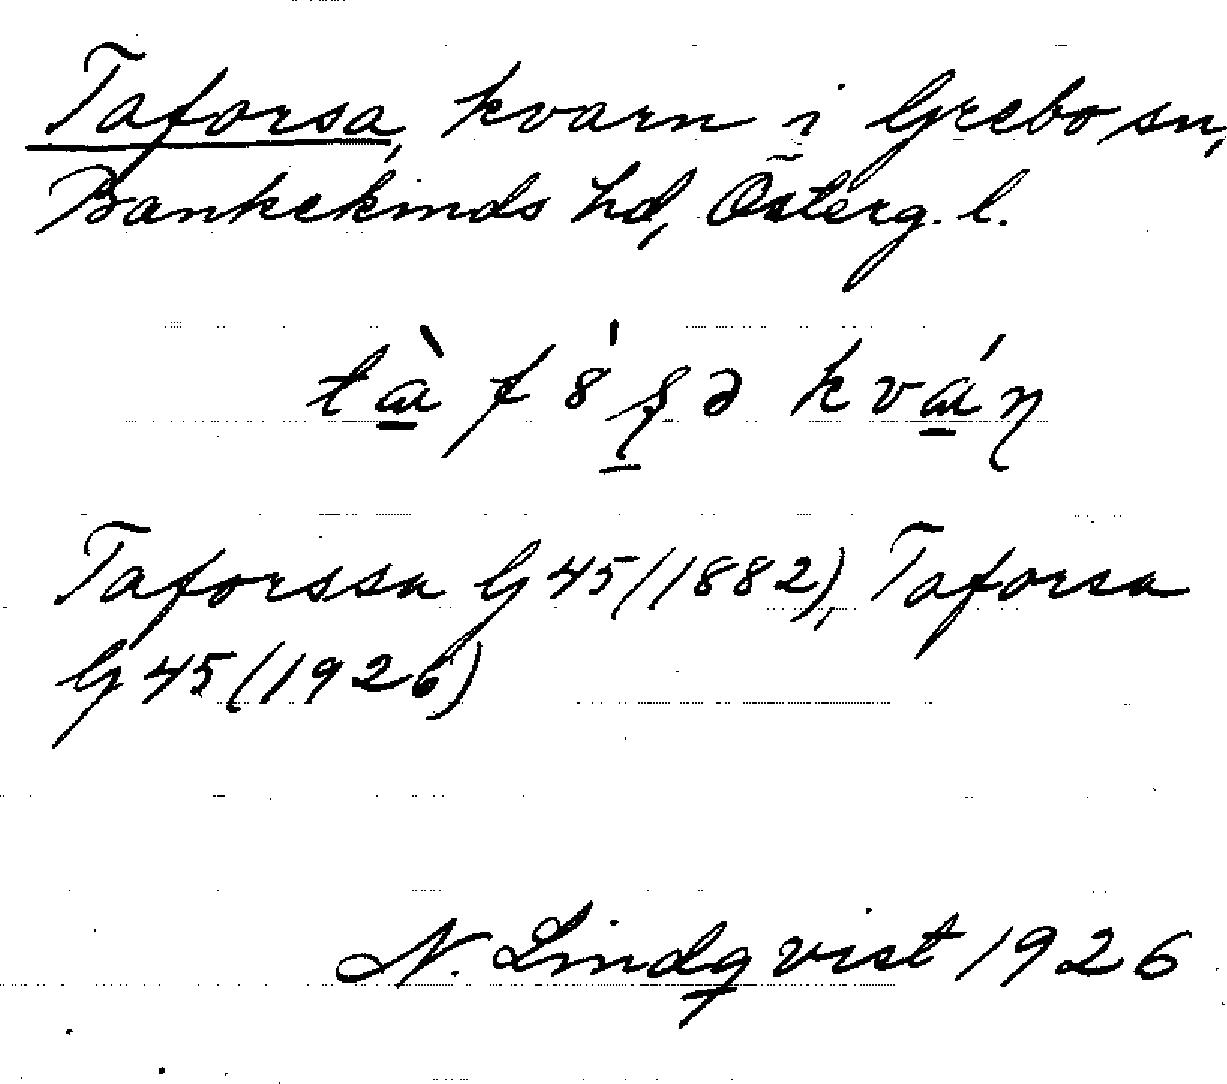 Taforsa, kvarn i Grebo sn,
Bankekinds hd, Österg. l.
Taforssa G45(1882), Taforsa
G45(1926)
N. Lindqvist 1926